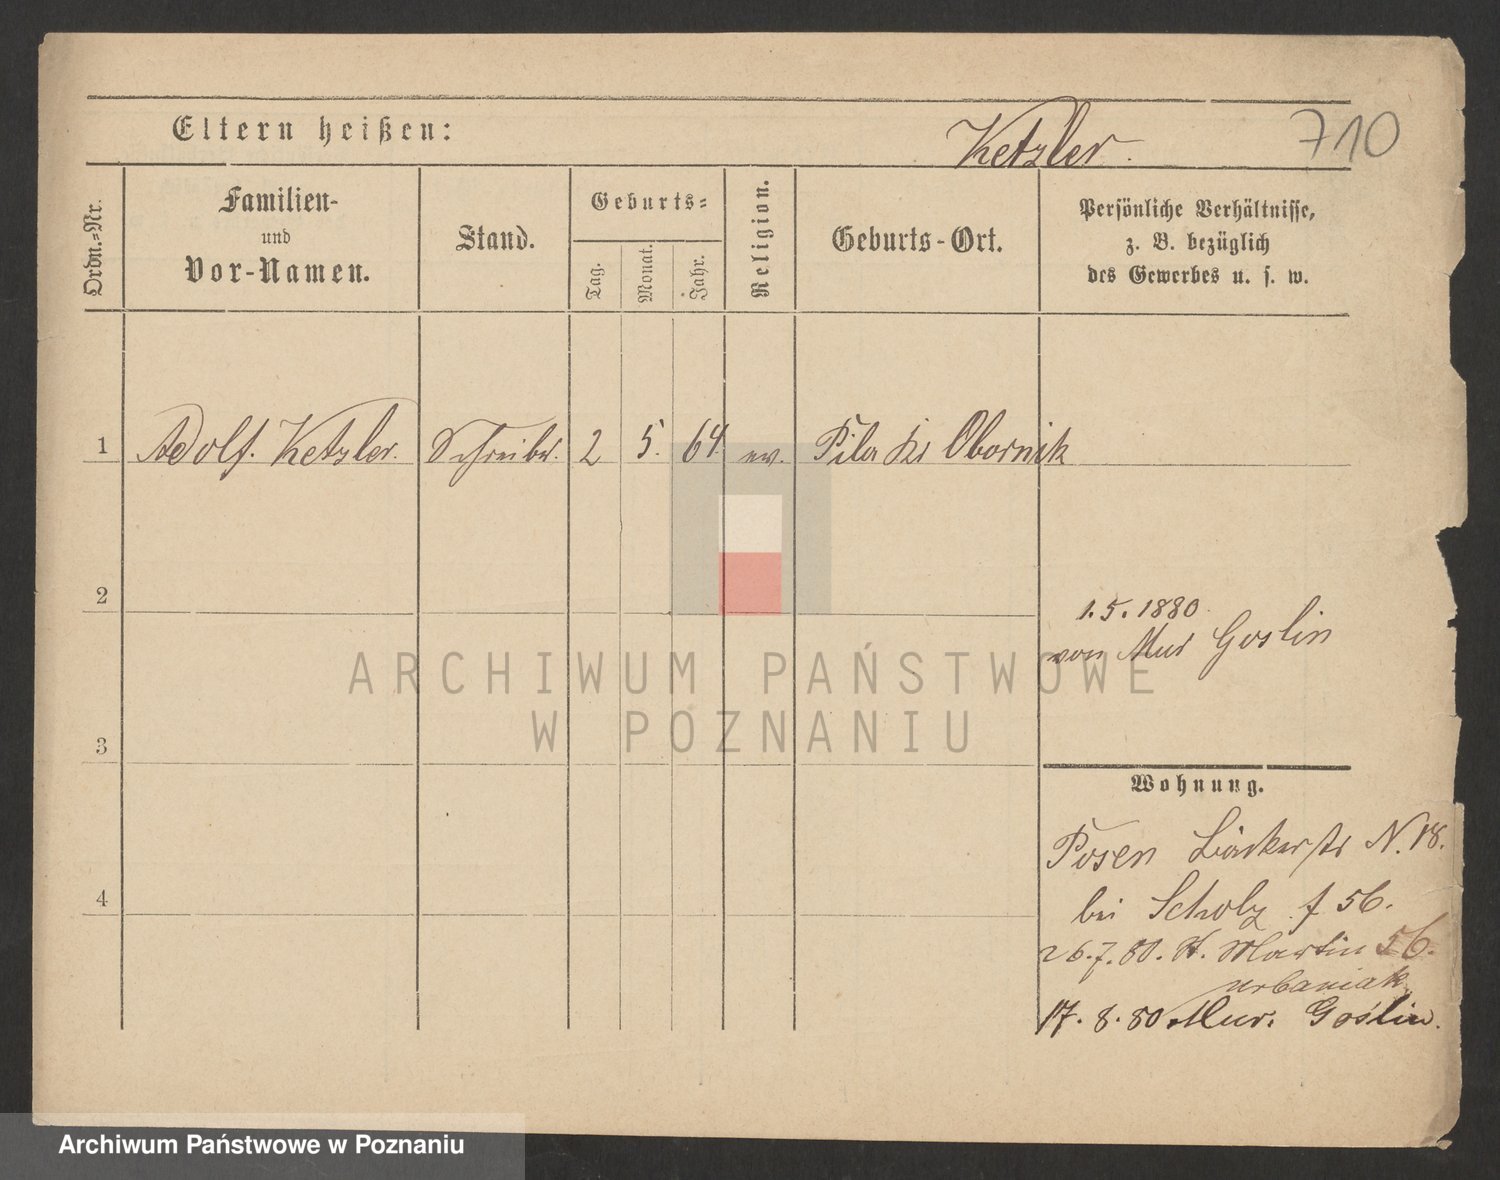 710
Eltern heißen:
Ketzler.
Ordn.-Nr.
Familien-
und
Vor-Namen.
Stand.
Geburts-
Tag.
Monat.
Jahr.
Religion.
Geburts-Ort.
Persönliche Verhältnisse,
z. B. bezüglich
des Gewerbes u. s. w.
1 Adolf. Ketzler. Schreiber. 2 5. 64. ev. Pila Kr Obornik
2
1.5.1880.
von Mur Goslin
3
Wohnung.
Posen Bäckerstr N. 18.
4
bei Scholz f 56.
26.7.80. St. Martin 56.
Urbaniak
17.8.80 Mur. Goślin.
ARCHIWUM PAŃSTWOWE
W POZNANIU
Archiwum Państwowe w Poznaniu